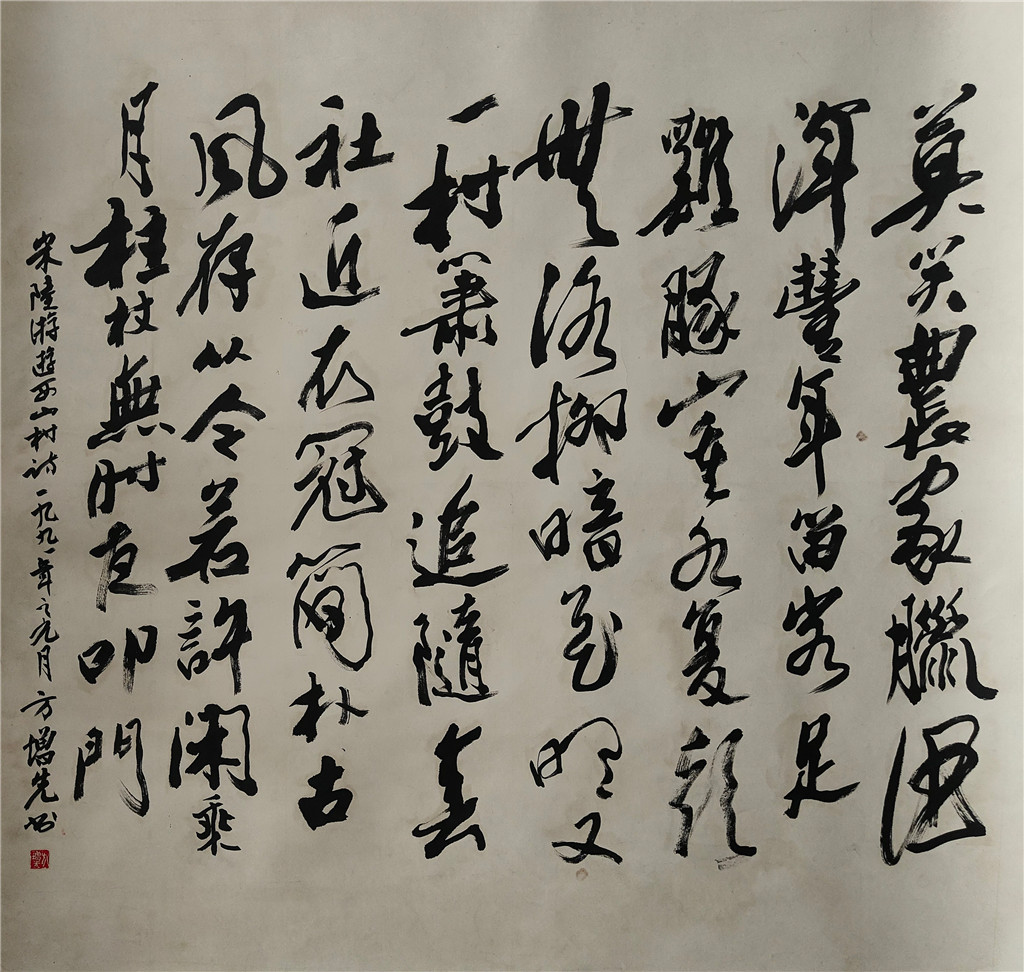 莫笑農家臘酒
渾豐年留客足
雞豚山重水复疑
無路柳暗花明又
一村簫鼓追隨春
社近衣冠簡朴古
風存从今若許閑乘
月拄杖無時夜叩門
宋陸游遊西山村詩一九九一年之九月方增先书